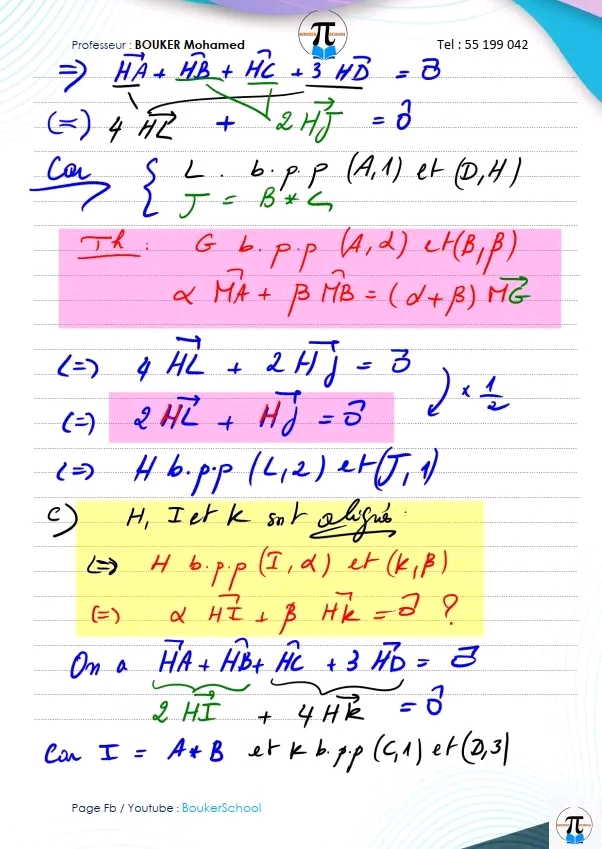 Professeur : BOUKER Mohamed
BOUKER SCHOOL
Tel : 55 199 042
=> HA⃗ + HB⃗ + HC⃗ + 3 HD⃗ = 0⃗
(=) 4 HL⃗ + 2 HJ⃗ = 0⃗
Car { L . b.p.p (A,1) et (D,H)
J = B * C
Th : G b.p.p (A,α) et (B,β)
α MA⃗ + β MB⃗ = (α+β) MG⃗
(=) 4 HL⃗ + 2 HJ⃗ = 0⃗
× 1/2
(=) 2 HL⃗ + HJ⃗ = 0⃗
(=) H b.p.p (L,2) et (J,1)
c) H, I et K sont alignés.
(=) H b.p.p (I,α) et (K,β)
(=) α HI⃗ + β HK⃗ = 0⃗ ?
On a HA⃗ + HB⃗ + HC⃗ + 3 HD⃗ = 0⃗
2 HI⃗ + 4 HK⃗ = 0⃗
Car I = A * B et K b.p.p (C,1) et (D,3)
Page Fb / Youtube : BoukerSchool